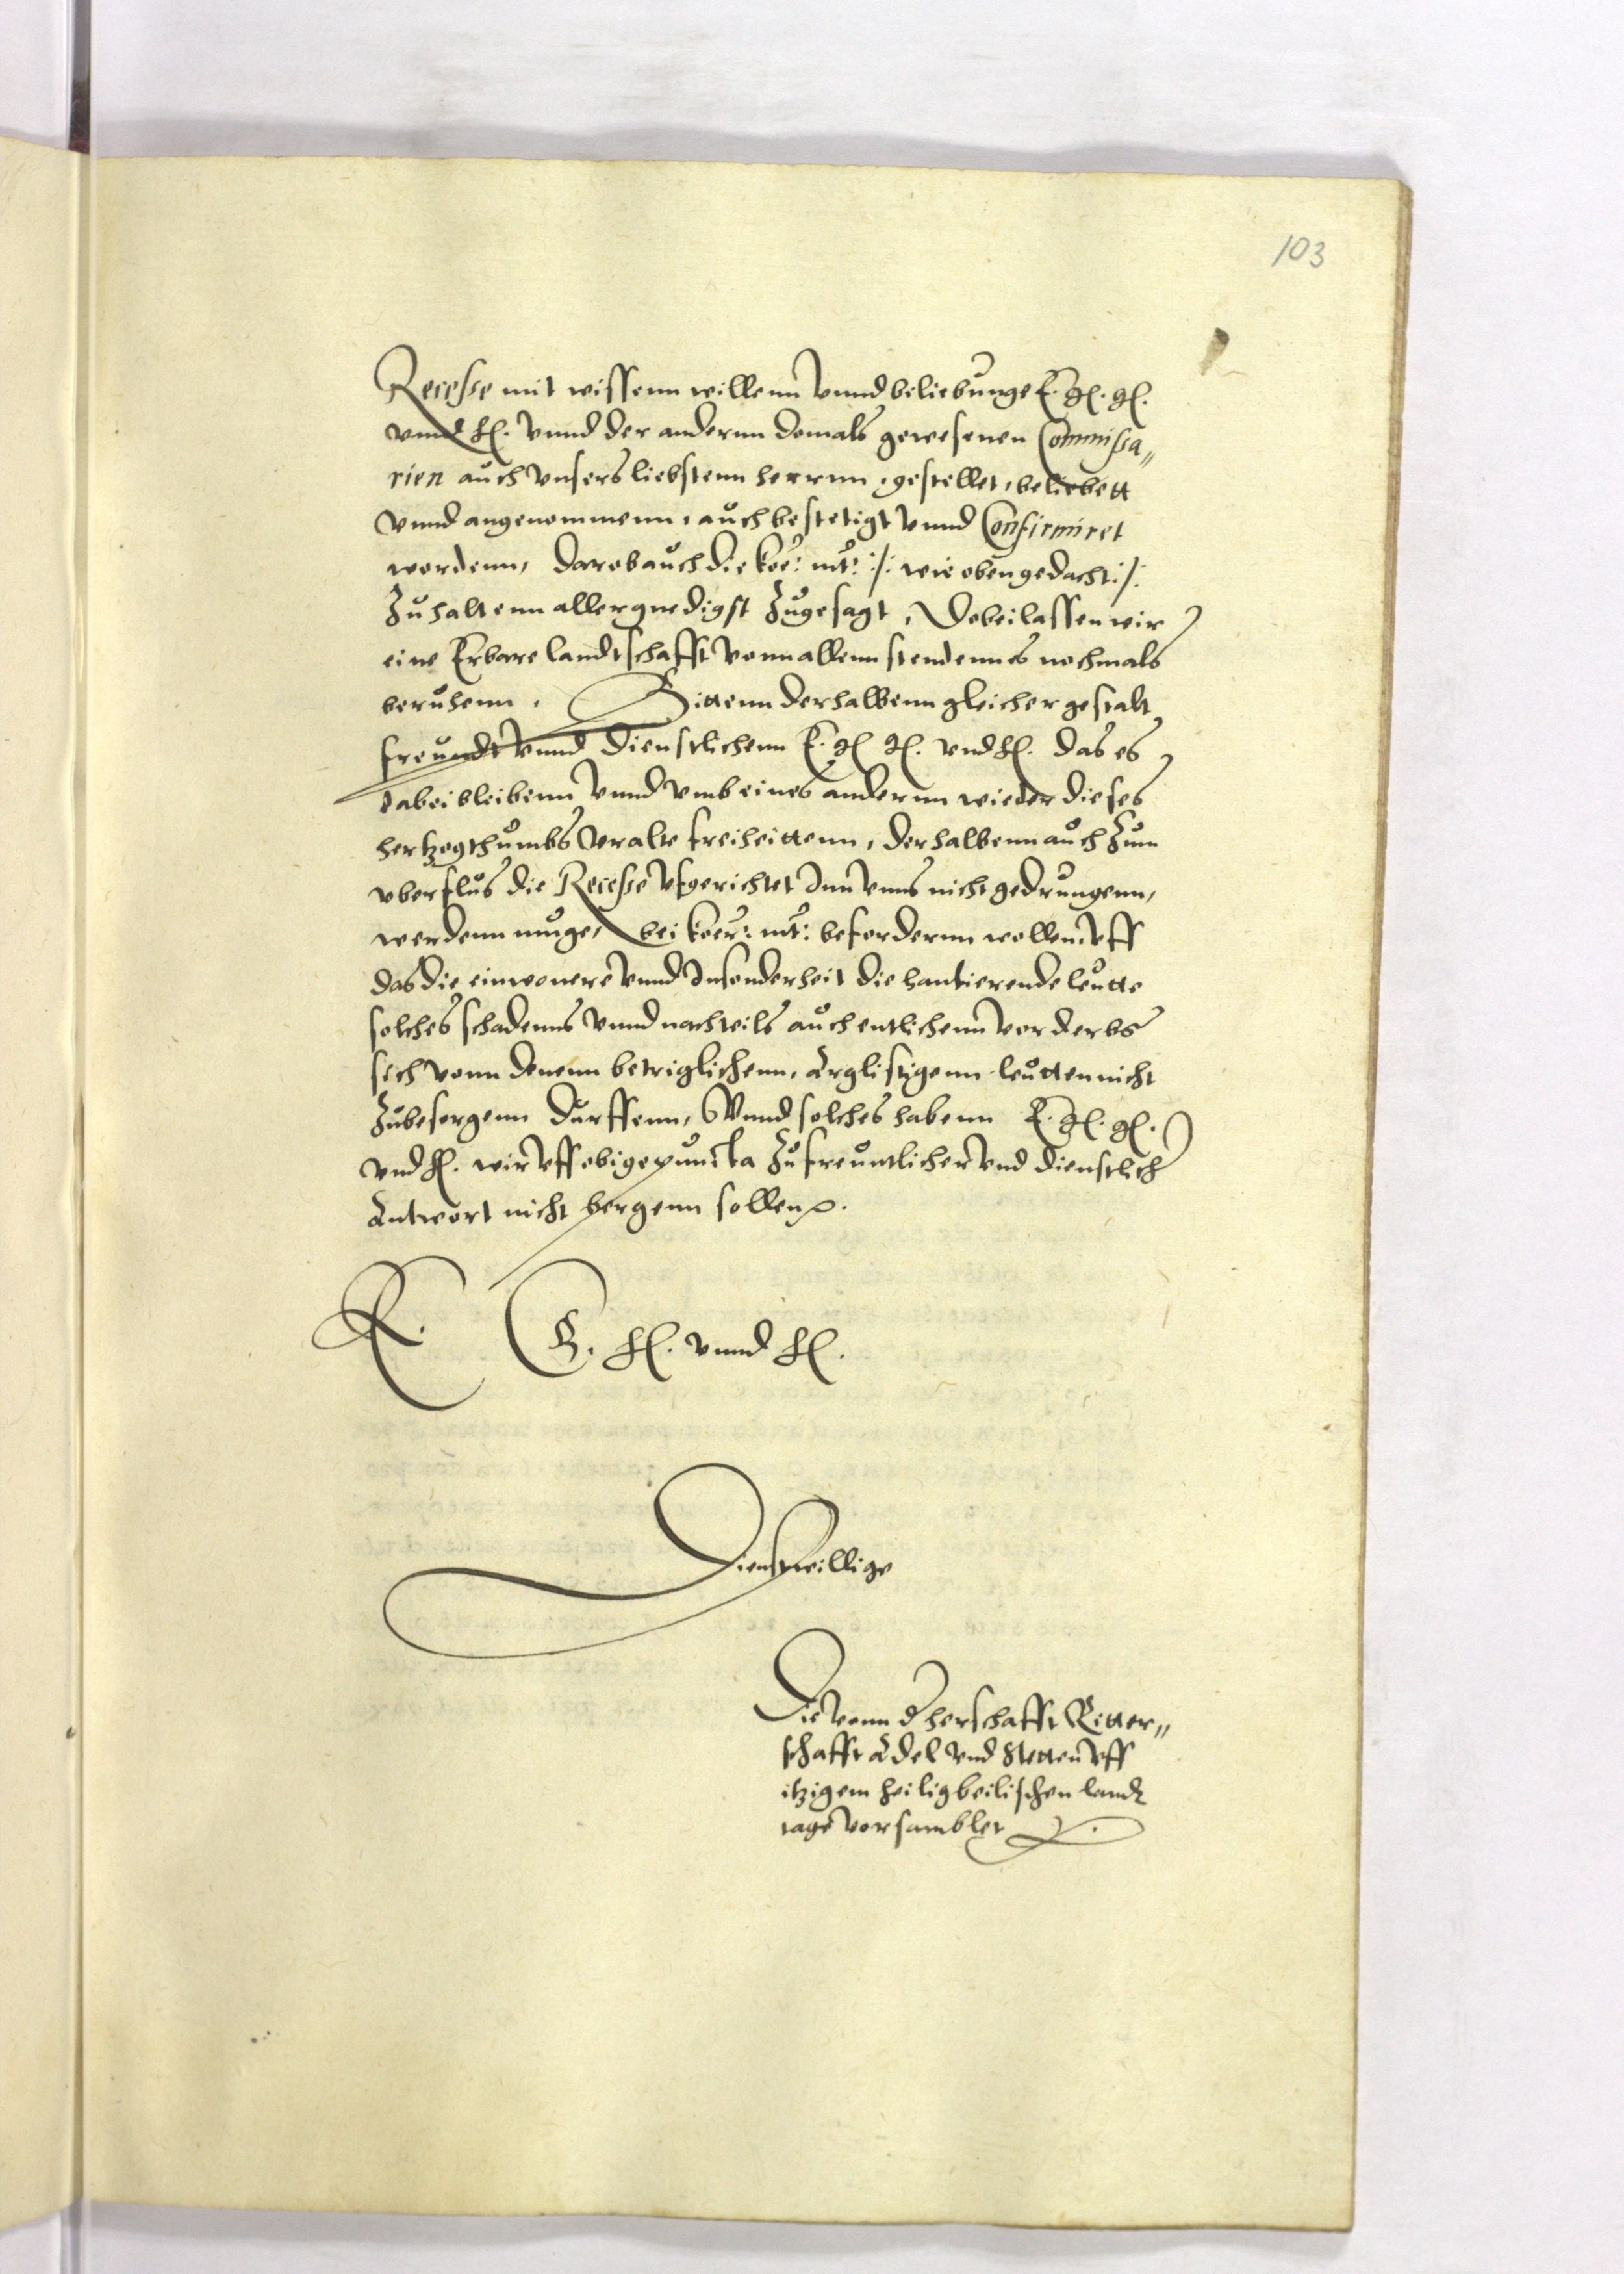 103
Recesse mit wissenn willenn vnnd beliebunge E. gl. gl.
vnnd hl. vnnd der anderrnn domals gewesenen Commissa„
rien auch vnsers liebstenn herrnn, gestellet, beliebett
vnnd angenommenn, auch bestetigt vnnd Confirmiret
wordenn, darob auch die koe: mt: /: wie oben gedacht :/
zu haltenn allergnedigst zugesagt, Dobei lassen wir
eine Erbare landtschafft vonn allenn stendenn es nochmals
beruhenn. Bittenn derhalbenn gleicher gestalt
freundt vnnd dienstlichenn E. gl gl. vnd hl. das es
dabei bleibenn vnnd vmb eines anderrnn wieder dieses
hertzogthumbs vralte freiheittenn, derhalbenn auch zum
vberflus die Recesse vfgerichtet Inn vnns nicht gedrungenn,
werdenn muge, bei koer: mt: befordernn wollenn, vff
das die einwonere vnnd Insonderheit die hantierende leutte
solches schadenns vnnd nachteils auch entlichenn vorderbs
sich vonn denenn betriglichenn, Arglistigenn leutten nicht
zubesorgenn durffenn, Vnnd solches habenn E. gl. gl.
vnd hl. wir vff obige puncta zu freuntlicher vnd dienstlich
Antwort nicht bergenn sollen.
E. G. hl. vnnd hl.
Dienstwillige
Die vonn d herschafft Ritter„
schafft Adel vnd Stetten vff
itzigem heiligbeilischen landt
tage vorsamblet